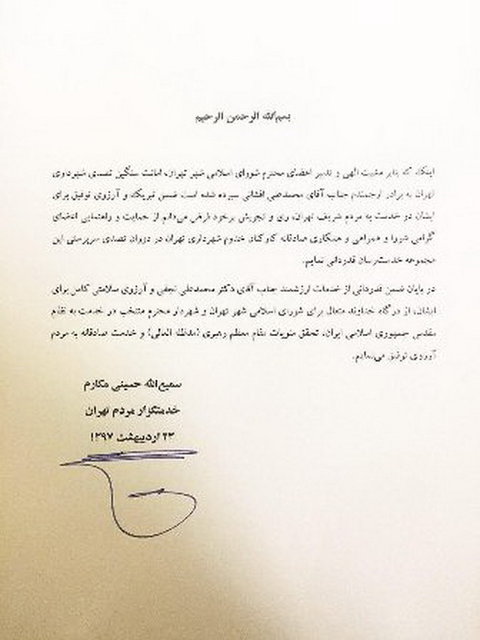 بسم‌الله الرحمن الرحیم
اینک که بنابر مشیت الهی و تدبیر اعضای محترم شورای اسلامی شهر تهران، امانت سنگین تصدی شهرداری
تهران به برادر ارجمندم جناب آقای محمدعلی افشانی سپرده شده است ضمن تبریک و آرزوی توفیق برای
ایشان در خدمت به مردم شریف تهران، ری و تجریش برخود فرض می‌دانم از حمایت و راهنمایی اعضای
گرامی شورا و همراهی و همکاری صادقانه کارکنان خدوم شهرداری تهران در دوران تصدی سرپرستی این
مجموعه خدمت‌رسان قدردانی نمایم.
در پایان ضمن قدردانی از خدمات ارزشمند جناب آقای دکتر محمدعلی نجفی و آرزوی سلامتی کامل برای
ایشان، از درگاه خداوند متعال برای شورای اسلامی شهر تهران و شهردار محترم منتخب در خدمت به نظام
مقدس جمهوری اسلامی ایران، تحقق منویات مقام معظم رهبری (مدظله العالی) و خدمت صادقانه به مردم
آرزوی توفیق می‌نمایم.
سمیع‌الله حسینی مکارم
خدمتگزار مردم تهران
۲۳ اردیبهشت ۱۳۹۷